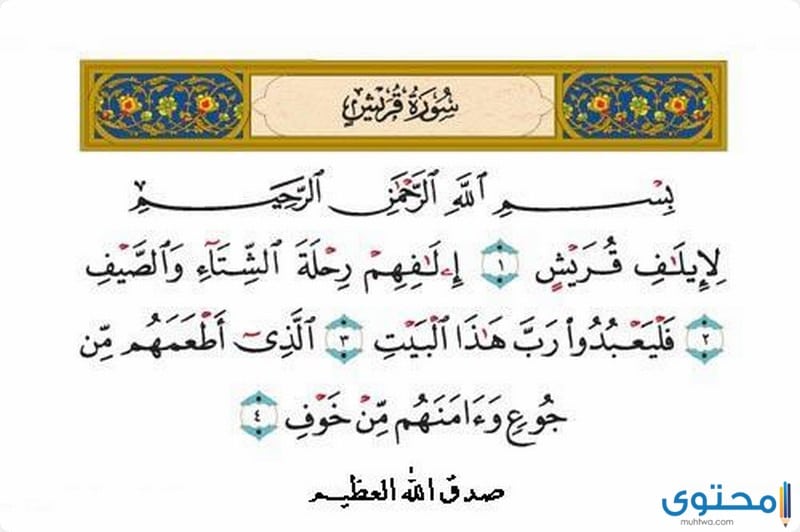 سُورَةُ قُرَيْشٍ
بِسْمِ ٱللَّهِ ٱلرَّحْمَٰنِ ٱلرَّحِيمِ
لِإِيلَٰفِ قُرَيْشٍ ١ إِۦلَٰفِهِمْ رِحْلَةَ ٱلشِّتَآءِ وَٱلصَّيْفِ
٢ فَلْيَعْبُدُوا۟ رَبَّ هَٰذَا ٱلْبَيْتِ ٣ ٱلَّذِىٓ أَطْعَمَهُم مِّن
جُوعٍ وَءَامَنَهُم مِّنْ خَوْفٍ ٤
صدق الله العظيم
محتوى
muhtwa.com